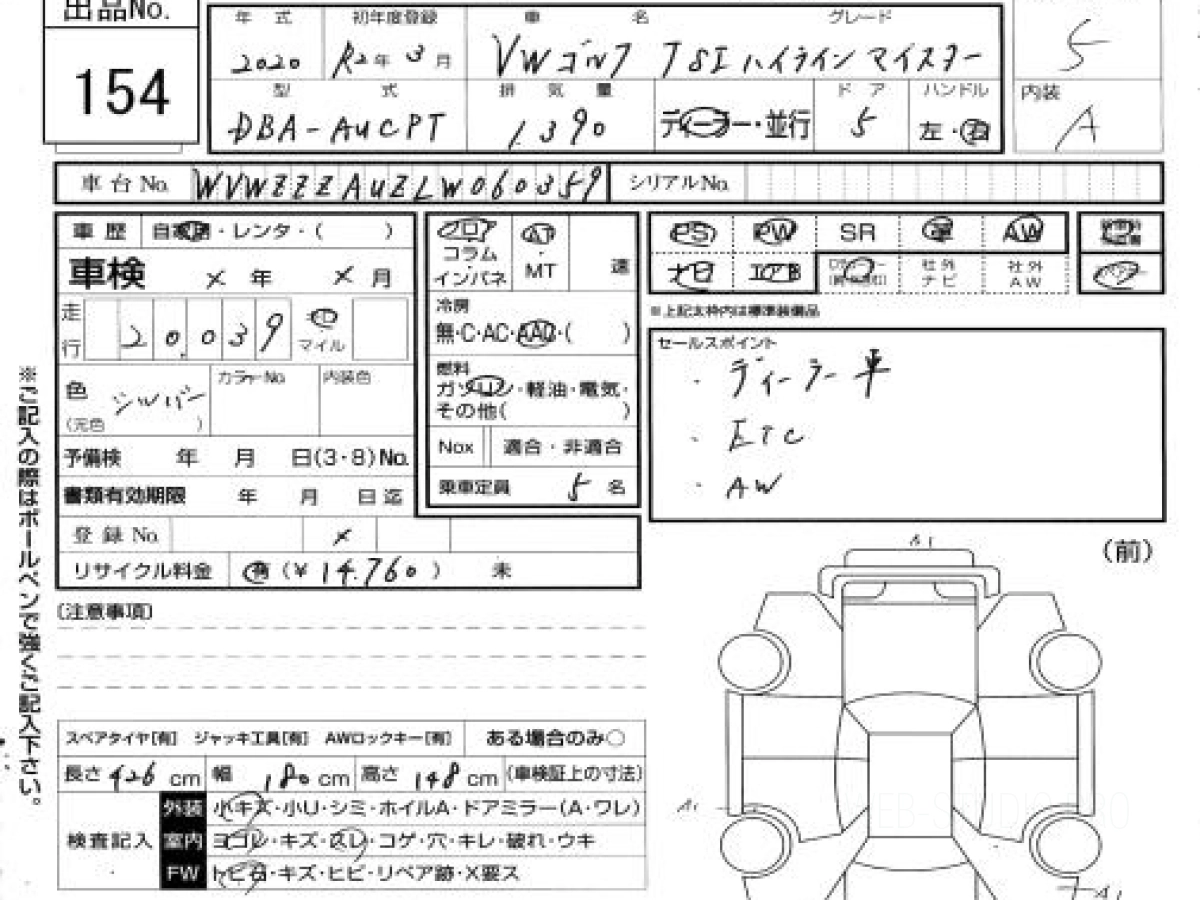 出品No.
154
年式 初年度登録 車名 グレード
2020 R2年 3月 VWゴルフ TSIハイラインマイスター 5
型式 排気量 ドア ハンドル 内装
DBA-AUCPT 1.390 ディーラー・並行 5 左・右 A
車台No. WVWZZZAUZLW060359 シリアルNo.
車歴 自家用・レンタ・( )
車検 × 年 × 月
走行 20.039 マイル
色 シルバー カラーNo 内装色
(元色 )
予備検 年 月 日(3・8)No.
書類有効期限 年 月 日迄
登録No. ×
リサイクル料金 有 (¥14.760) 未
フロア AT
コラム
インパネ MT 速
冷房
無・C・AC・AAC・( )
燃料
ガソリン・軽油・電気・
その他( )
Nox 適合・非適合
乗車定員 5 名
PS PW SR 革 AW
エアB 社外ナビ 社外AW
※上記太枠内は標準装備品
セールスポイント
・ディーラー車
・ETC
・AW
※ご記入の際はボールペンで強くご記入下さい。
(注意事項)
A1 (前)
スペアタイヤ[有] ジャッキ工具[有] AWロックキー[有] ある場合のみ○
長さ 426 cm 幅 180 cm 高さ 148 cm (車検証上の寸法)
検査記入
外装 小キズ・小U・シミ・ホイルA・ドアミラー(A・ワレ)
室内 ヨゴレ・キズ・スレ・コゲ・穴・キレ・破れ・ウキ
FW トビ石・キズ・ヒビ・リペア跡・X要ス
A1
A1